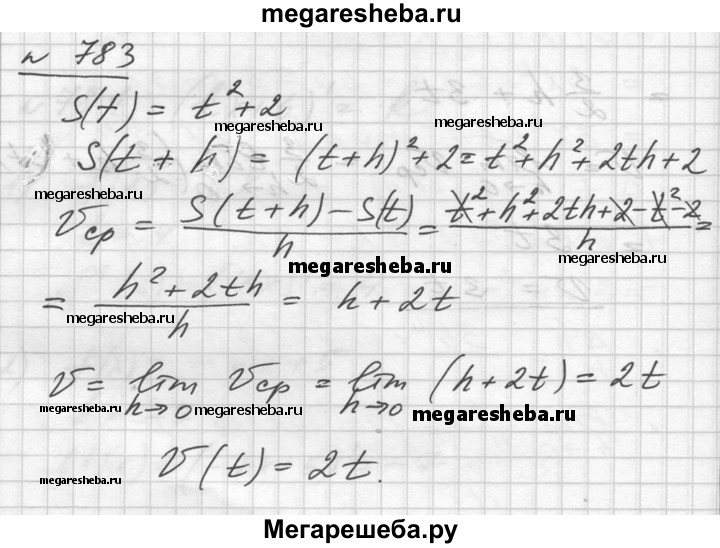 megaresheba.ru
№ 783
S(t) = t² + 2
megaresheba.ru
S(t + h) = (t+h)² + 2 = t² + h² + 2th + 2
megaresheba.ru
megaresheba.ru
vср = (S(t+h) − S(t))/h = (t² + h² + 2th + 2 − t² − 2)/h =
megaresheba.ru
megaresheba.ru
= (h² + 2th)/h = h + 2t
megaresheba.ru
v = lim h→0 vср = lim h→0 (h + 2t) = 2t
megaresheba.ru megaresheba.ru megaresheba.ru
v(t) = 2t.
megaresheba.ru
Мегарешеба.ру